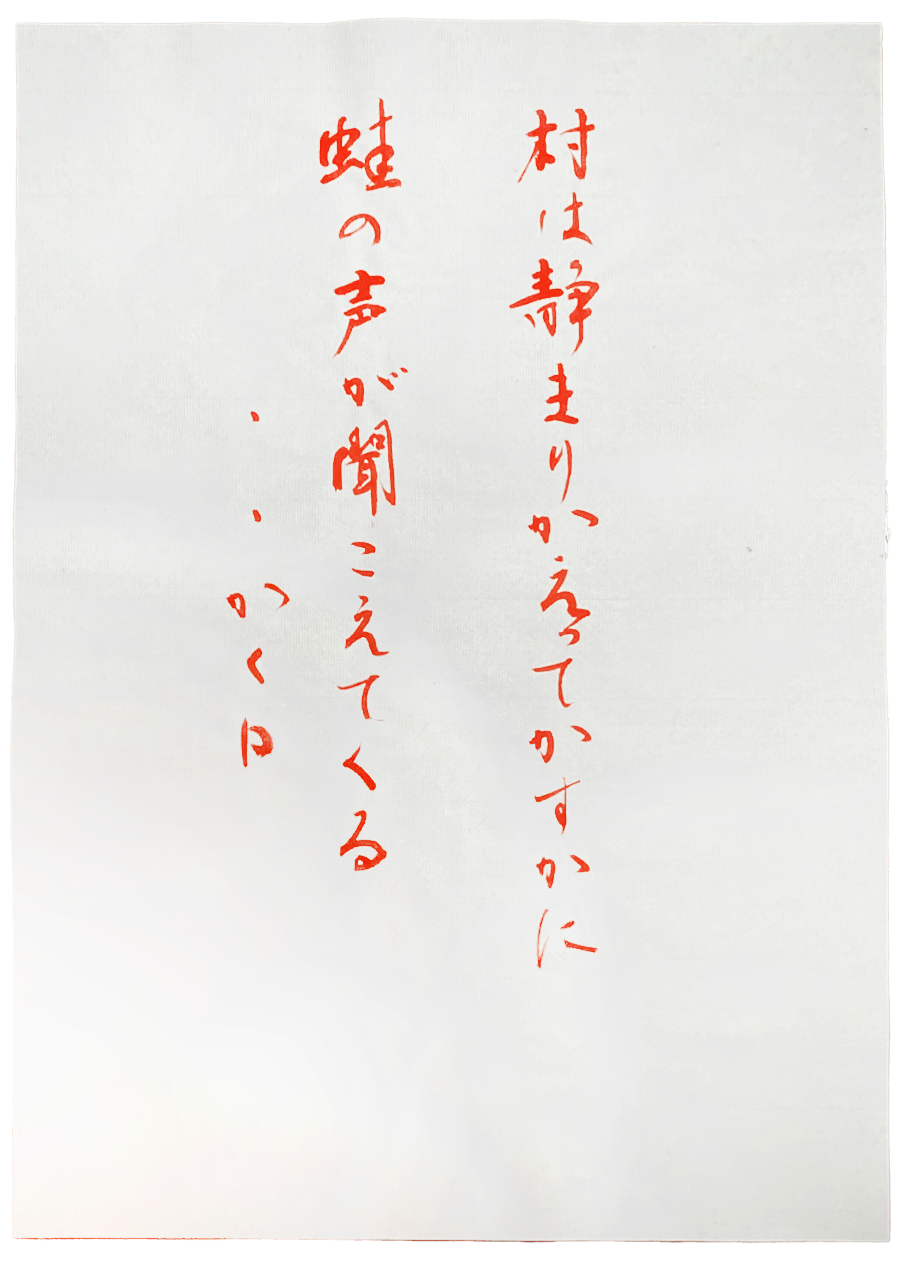 村は静まりかえってかすかに
蛙の声が聞こえてくる
、、かく日